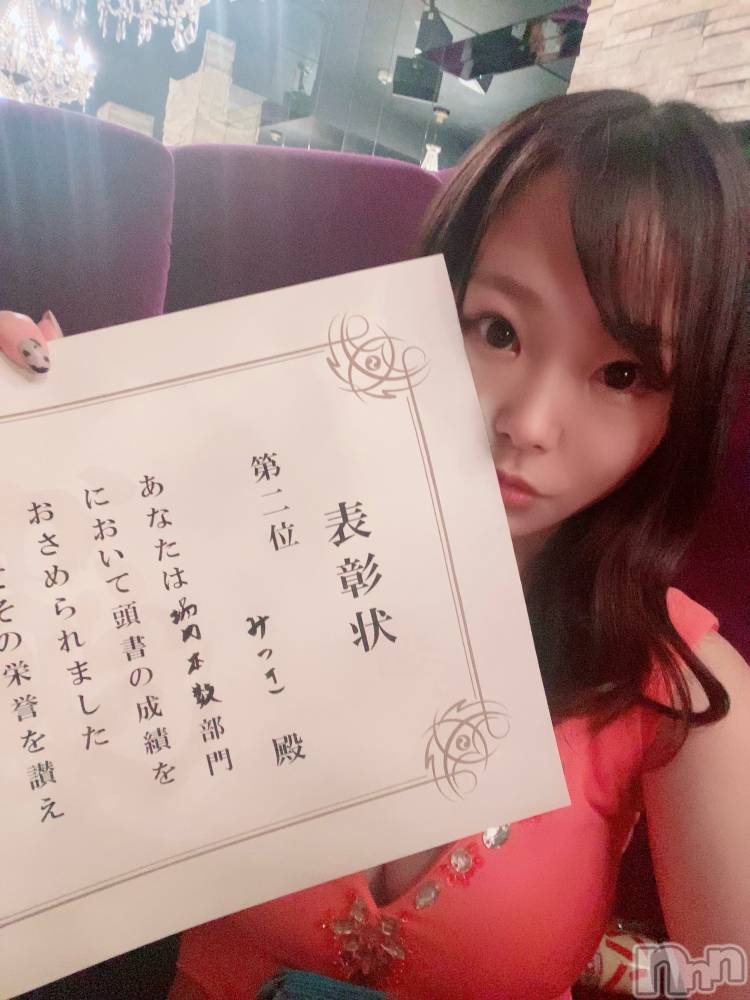 表彰状
第二位 みつき 殿
あなたは場内本数部門
において頭書の成績を
おさめられました
その栄誉を讃え